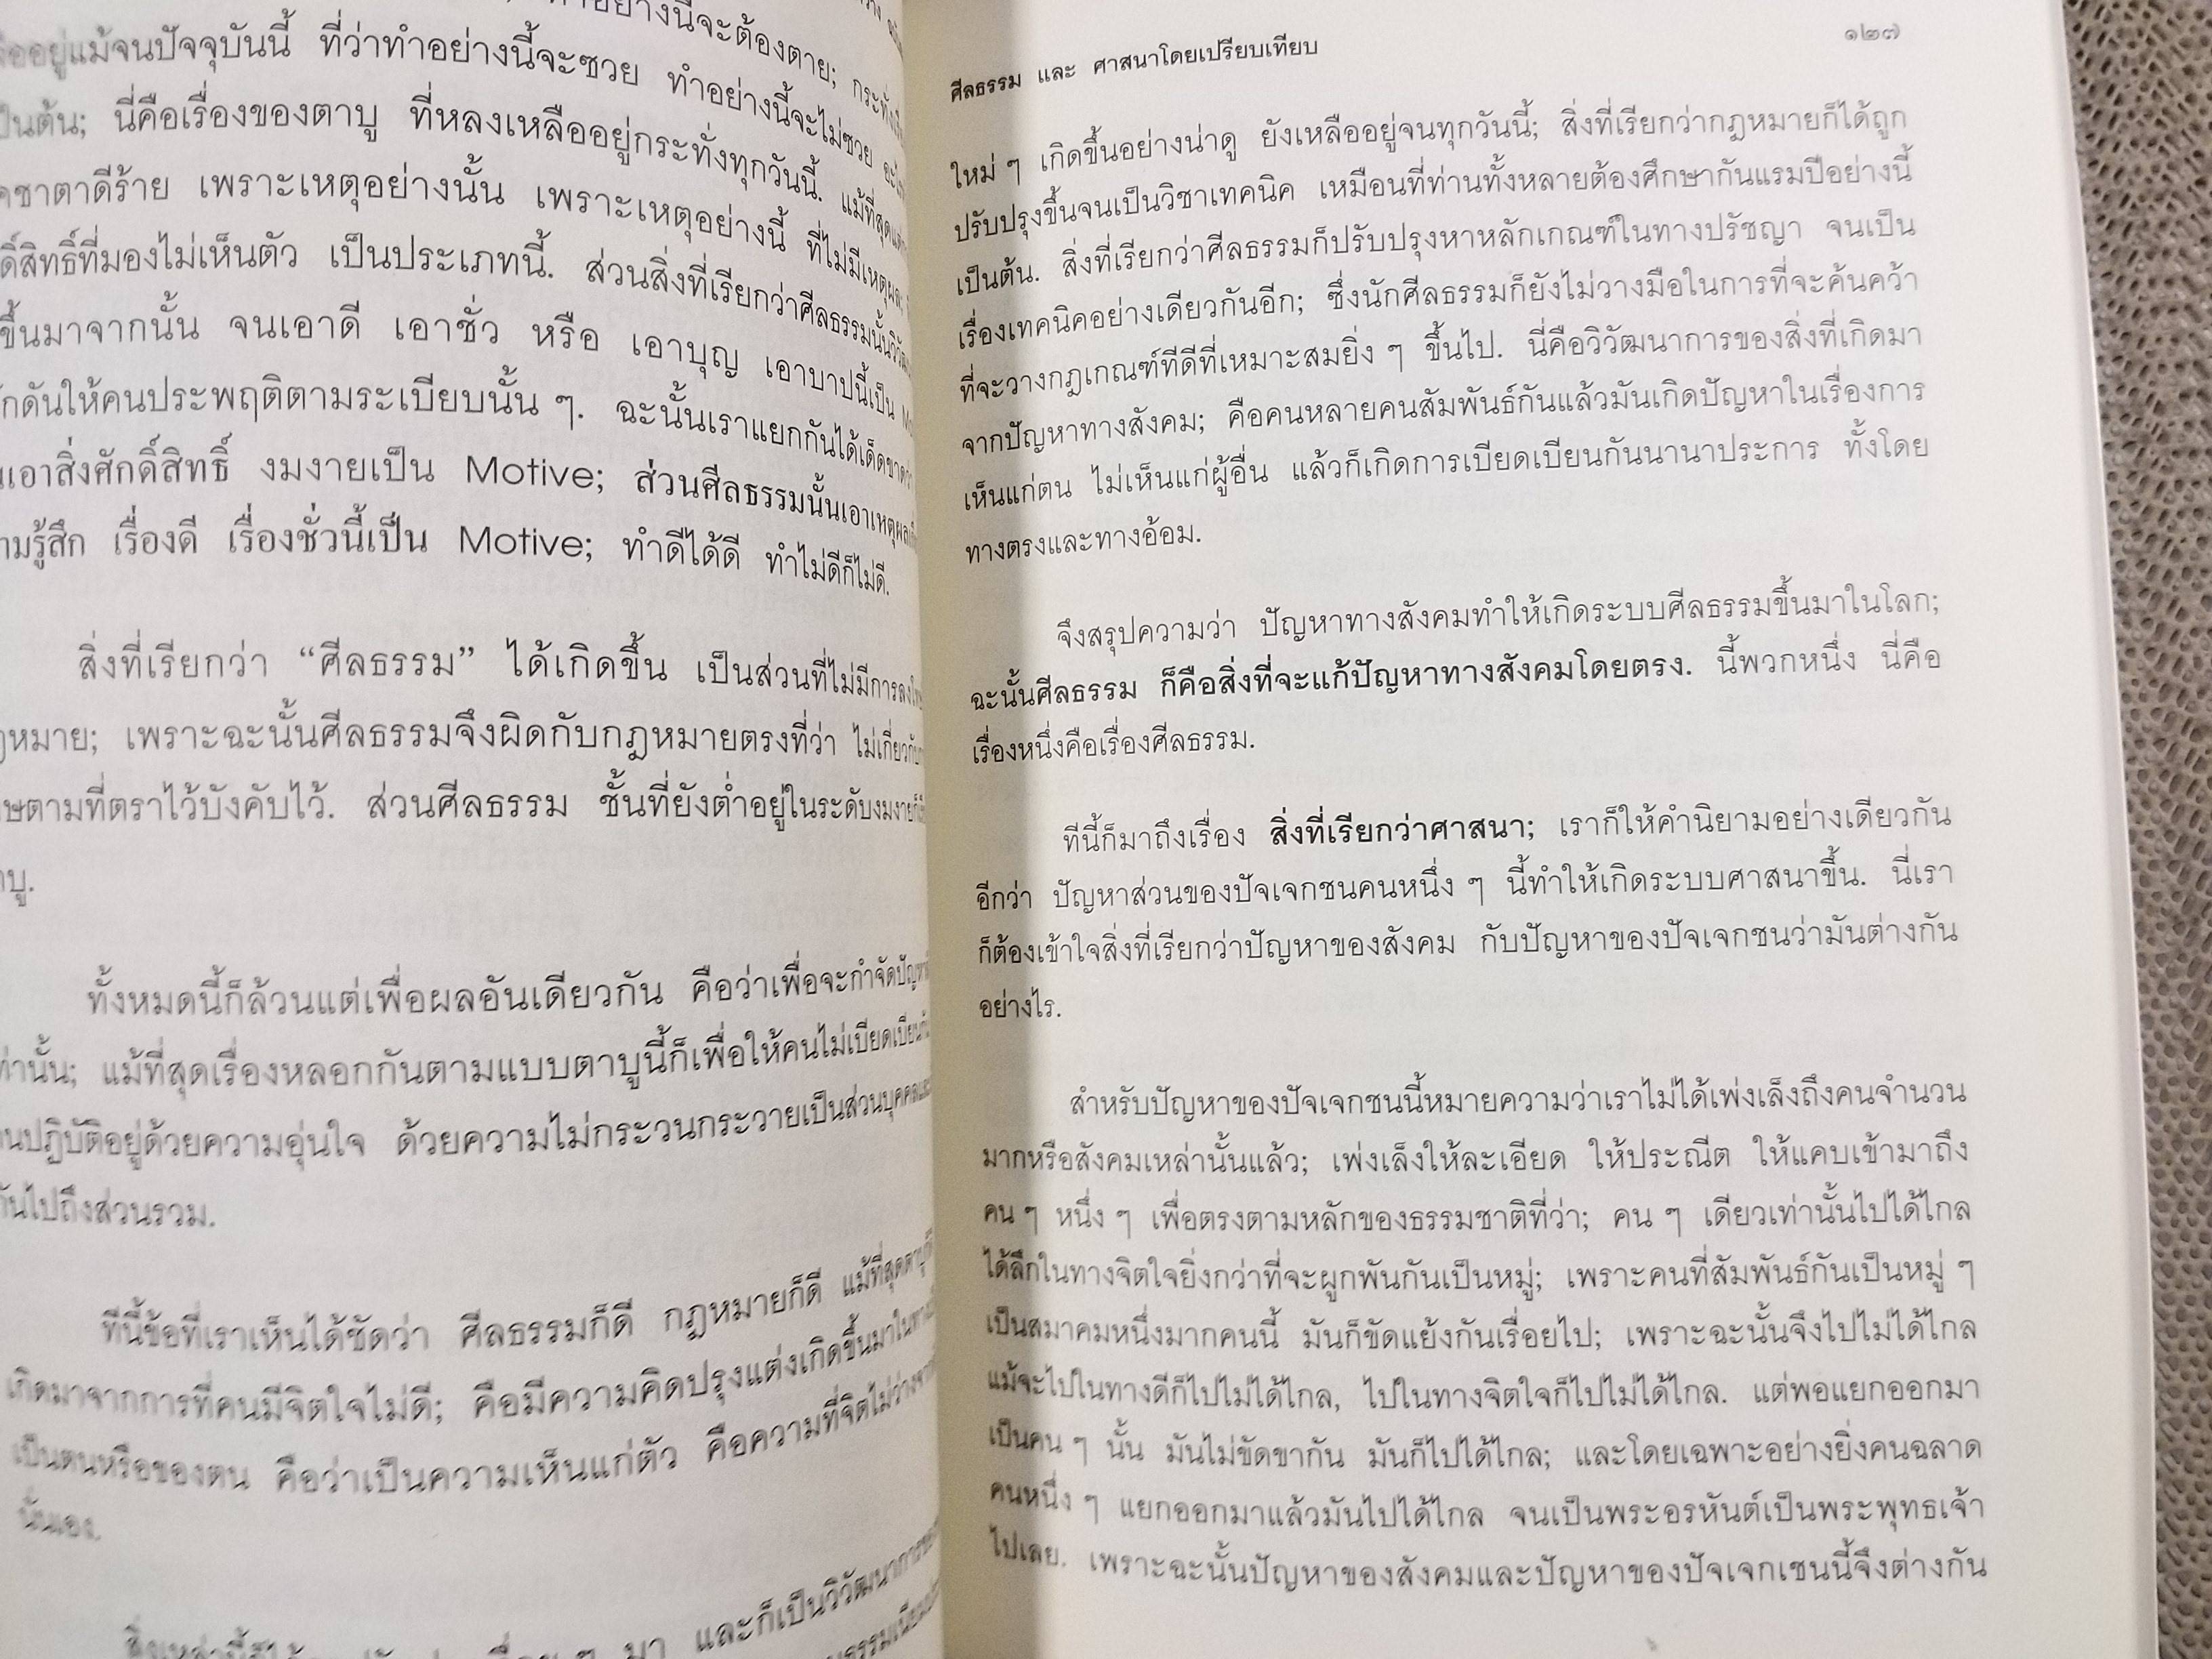 ทำอย่างนี้จะต้องตาย; กระทั่ง
อยู่แม้จนปัจจุบันนี้ ที่ว่าทำอย่างนี้จะซวย ทำอย่างนี้จะไม่ซวย
เป็นต้น; นี่คือเรื่องของตาบู ที่หลงเหลืออยู่กระทั่งทุกวันนี้. แม้ที่สุด
ชาตาดีร้าย เพราะเหตุอย่างนั้น เพราะเหตุอย่างนี้ ที่ไม่มีเหตุผล;
สิทธิ์ที่มองไม่เห็นตัว เป็นประเภทนี้. ส่วนสิ่งที่เรียกว่าศีลธรรมนั้น
ขึ้นมาจากนั้น จนเอาดี เอาชั่ว หรือ เอาบุญ เอาบาปนี้เป็น
ดันให้คนประพฤติตามระเบียบนั้น ๆ. ฉะนั้นเราแยกกันได้เด็ดขาด
เอาสิ่งศักดิ์สิทธิ์ งมงายเป็น Motive; ส่วนศีลธรรมนั้นเอาเหตุผล
รู้สึก เรื่องดี เรื่องชั่วนี้เป็น Motive; ทำดีได้ดี ทำไม่ดีก็ไม่ดี.
สิ่งที่เรียกว่า “ศีลธรรม” ได้เกิดขึ้น เป็นส่วนที่ไม่มีการ
หมาย; เพราะฉะนั้นศีลธรรมจึงผิดกับกฎหมายตรงที่ว่า
ตามที่ตราไว้บังคับไว้. ส่วนศีลธรรม ชั้นที่ยังต่ำอยู่ในระดับงมงาย
บู.
ทั้งหมดนี้ก็ล้วนแต่เพื่อผลอันเดียวกัน คือว่าเพื่อจะกำจัด
เท่านั้น; แม้ที่สุดเรื่องหลอกกันตามแบบตาบูนี้ก็เพื่อให้คนไม่เบียดเบียน
ปฏิบัติอยู่ด้วยความอุ่นใจ ด้วยความไม่กระวนกระวายเป็นส่วนบุคคล
ไปถึงส่วนรวม.
ทีนี้ข้อที่เราเห็นได้ชัดว่า ศีลธรรมก็ดี กฎหมายก็ดี แม้ที่สุด
เกิดมาจากการที่คนมีจิตใจไม่ดี; คือมีความคิดปรุงแต่งเกิดขึ้นมาในทาง
เป็นตนหรือของตน คือว่าเป็นความเห็นแก่ตัว คือความที่จิตไม่ว่าง
นั่นเอง.
มา และก็เป็นวิวัฒนาการ
ศีลธรรม และ ศาสนาโดยเปรียบเทียบ
๑๒๗
ใหม่ ๆ เกิดขึ้นอย่างน่าดู ยังเหลืออยู่จนทุกวันนี้; สิ่งที่เรียกว่ากฎหมายก็ได้ถูก
ปรับปรุงขึ้นจนเป็นวิชาเทคนิค เหมือนที่ท่านทั้งหลายต้องศึกษากันแรมปีอย่างนี้
เป็นต้น. สิ่งที่เรียกว่าศีลธรรมก็ปรับปรุงหาหลักเกณฑ์ในทางปรัชญา จนเป็น
เรื่องเทคนิคอย่างเดียวกันอีก; ซึ่งนักศีลธรรมก็ยังไม่วางมือในการที่จะค้นคว้า
ที่จะวางกฎเกณฑ์ทีดีที่เหมาะสมยิ่ง ๆ ขึ้นไป. นี่คือวิวัฒนาการของสิ่งที่เกิดมา
จากปัญหาทางสังคม; คือคนหลายคนสัมพันธ์กันแล้วมันเกิดปัญหาในเรื่องการ
เห็นแก่ตน ไม่เห็นแก่ผู้อื่น แล้วก็เกิดการเบียดเบียนกันนานาประการ ทั้งโดย
ทางตรงและทางอ้อม.
จึงสรุปความว่า ปัญหาทางสังคมทำให้เกิดระบบศีลธรรมขึ้นมาในโลก;
ฉะนั้นศีลธรรม ก็คือสิ่งที่จะแก้ปัญหาทางสังคมโดยตรง. นี้พวกหนึ่ง นี่คือ
เรื่องหนึ่งคือเรื่องศีลธรรม.
ทีนี้ก็มาถึงเรื่อง สิ่งที่เรียกว่าศาสนา; เราก็ให้คำนิยามอย่างเดียวกัน
อีกว่า ปัญหาส่วนของปัจเจกชนคนหนึ่ง ๆ นี้ทำให้เกิดระบบศาสนาขึ้น. นี่เรา
ก็ต้องเข้าใจสิ่งที่เรียกว่าปัญหาของสังคม กับปัญหาของปัจเจกชนว่ามันต่างกัน
อย่างไร.
สำหรับปัญหาของปัจเจกชนนี้หมายความว่าเราไม่ได้เพ่งเล็งถึงคนจำนวน
มากหรือสังคมเหล่านั้นแล้ว; เพ่งเล็งให้ละเอียด ให้ประณีต ให้แคบเข้ามาถึง
คน ๆ หนึ่ง ๆ เพื่อตรงตามหลักของธรรมชาติที่ว่า; คน ๆ เดียวเท่านั้นไปได้ไกล
ได้ลึกในทางจิตใจยิ่งกว่าที่จะผูกพันกันเป็นหมู่; เพราะคนที่สัมพันธ์กันเป็นหมู่ ๆ
เป็นสมาคมหนึ่งมากคนนี้ มันก็ขัดแย้งกันเรื่อยไป; เพราะฉะนั้นจึงไปไม่ได้ไกล
แม้จะไปในทางดีก็ไปไม่ได้ไกล, ไปในทางจิตใจก็ไปไม่ได้ไกล. แต่พอแยกออกมา
เป็นคน ๆ นั้น มันไม่ขัดขากัน มันก็ไปได้ไกล; และโดยเฉพาะอย่างยิ่งคนฉลาด
คนหนึ่ง ๆ แยกออกมาแล้วมันไปได้ไกล จนเป็นพระอรหันต์เป็นพระพุทธเจ้า
ไปเลย. เพราะฉะนั้นปัญหาของสังคมและปัญหาของปัจเจกเชนนี้จึงต่างกัน